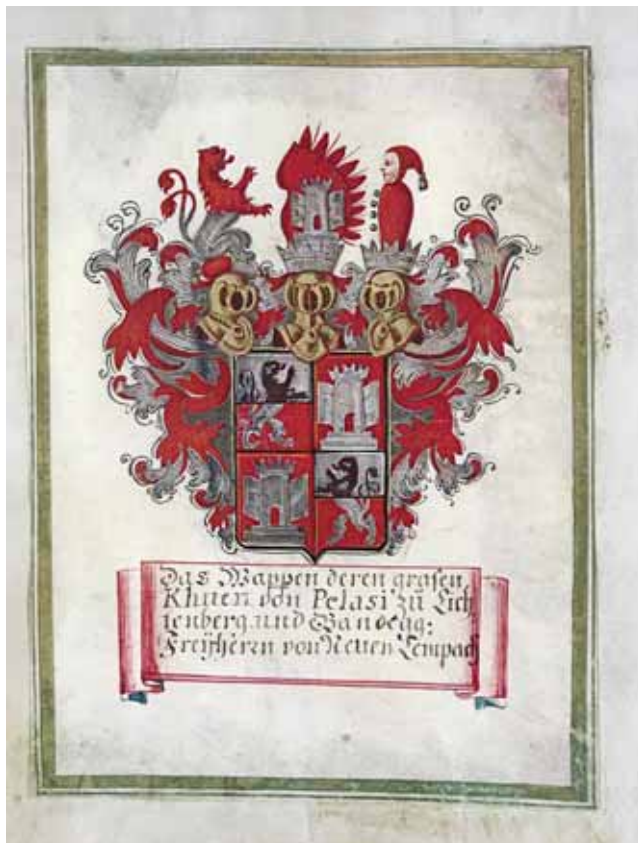 Das Wappen deren grafen,
Khuen von Pelasi zů Lich
tenberg und Gandegg:
Freÿherrn von Neuen Lempach